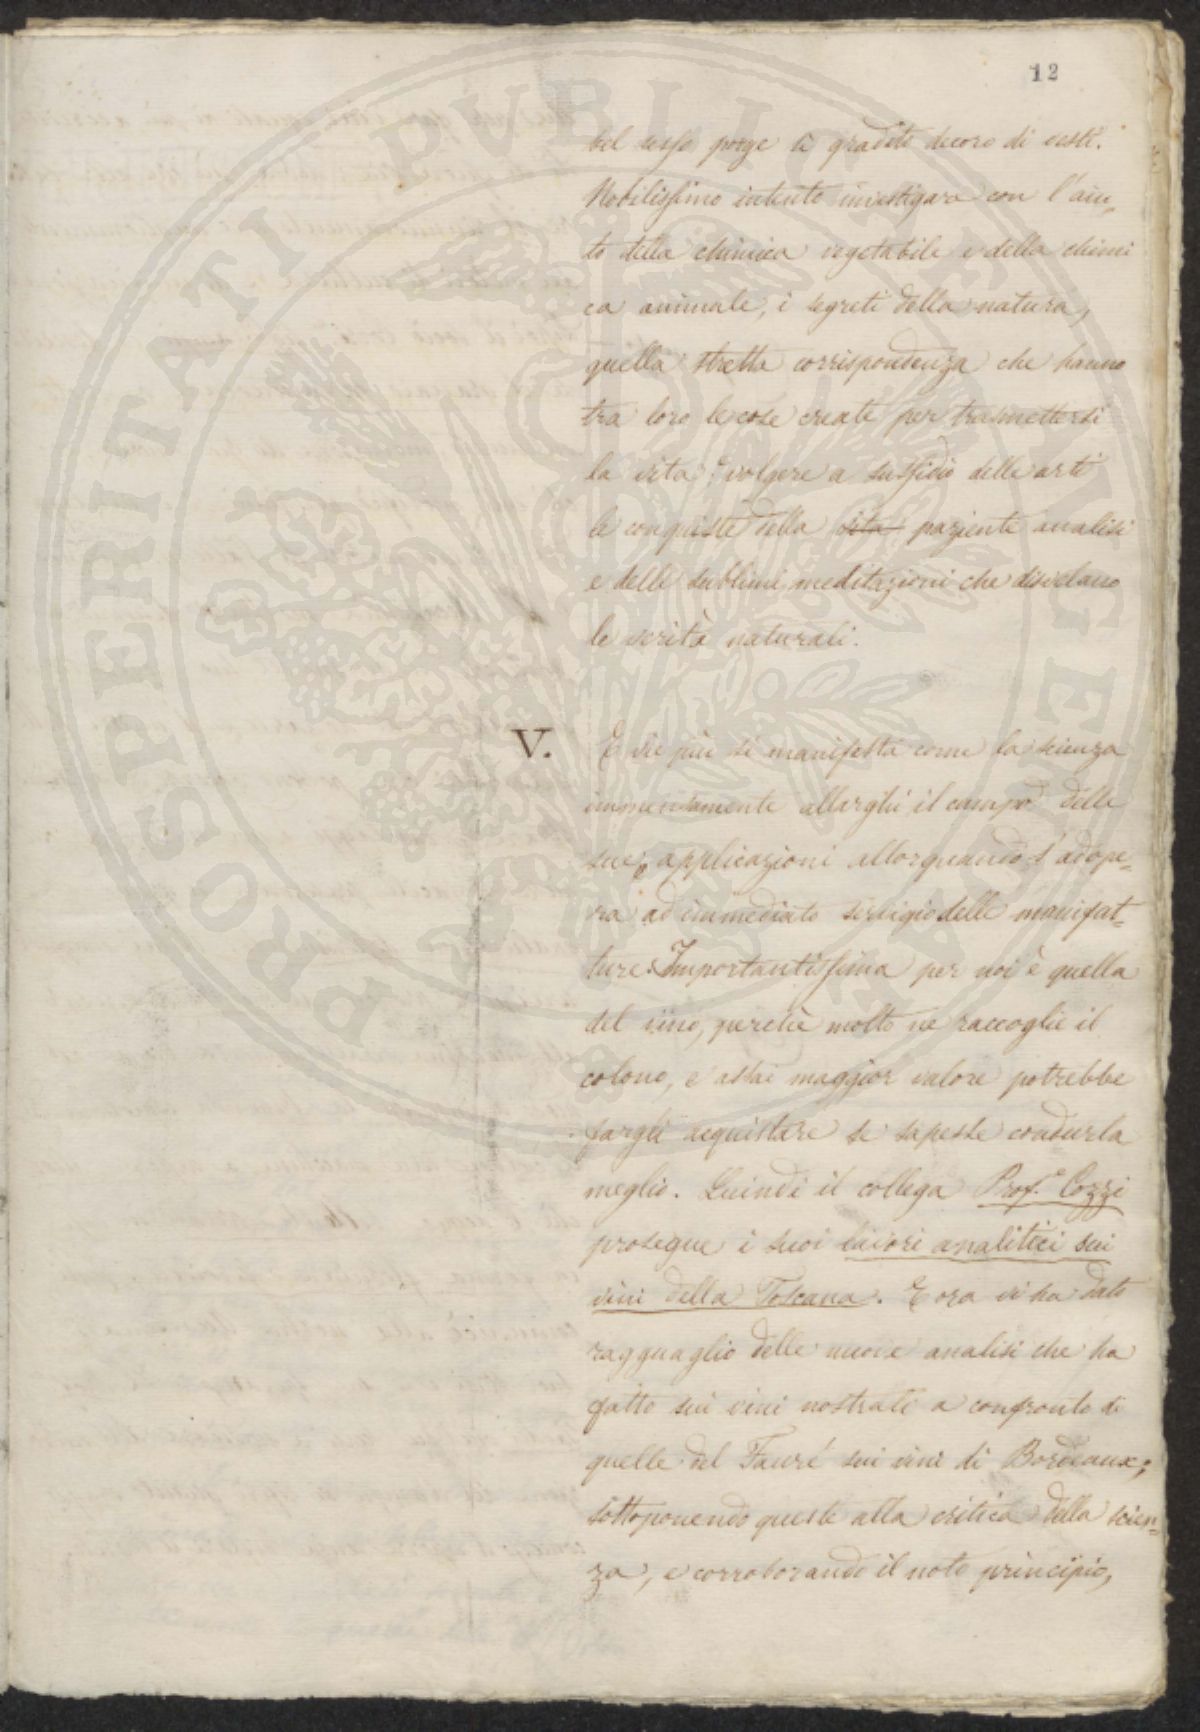 12
bel sesso porge il gradito decoro di vesti.
Nobilissimo intento investigare con l'aiu-
to della chimica vegetabile e della chimi
ca animale, i segreti della natura,
quella stretta corrispondenza che hanno
tra loro le cose create per trasmettersi
la vita; e volgere a sussidio delle arti
le conquiste della vita paziente analisi
e delle sublimi meditazioni che disvelano
le verità naturali.
V. E vie più si manifesta come la scienza
immensamente allarghi il campo delle
sue applicazioni allorquando s'adope-
ra ad immediato servigio delle manifat-
ture. Importantissima per noi è quella
del vino, perchè molto ne raccoglie il
colono, e assai maggior valore potrebbe
fargli acquistare se sapesse condurla
meglio. Quindi il collega Prof.e Cozzi
prosegue i suoi lavori analitici sui
vini della Toscana. E ora vi ha dato
ragguaglio delle nuove analisi che ha
fatto sui vini nostrali a confronto di
quelle del Fauré sui vini di Bordeaux;
sottoponendo queste alla critica della scien-
za, e corroborando il noto principio,
PROSPERITATI PUBLICAE AUGENDAE